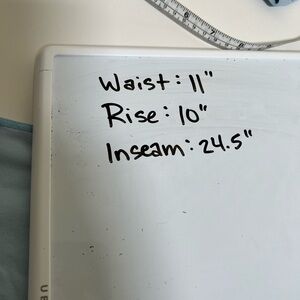 Waist: 11"
Rise: 10"
Inseam: 24.5"